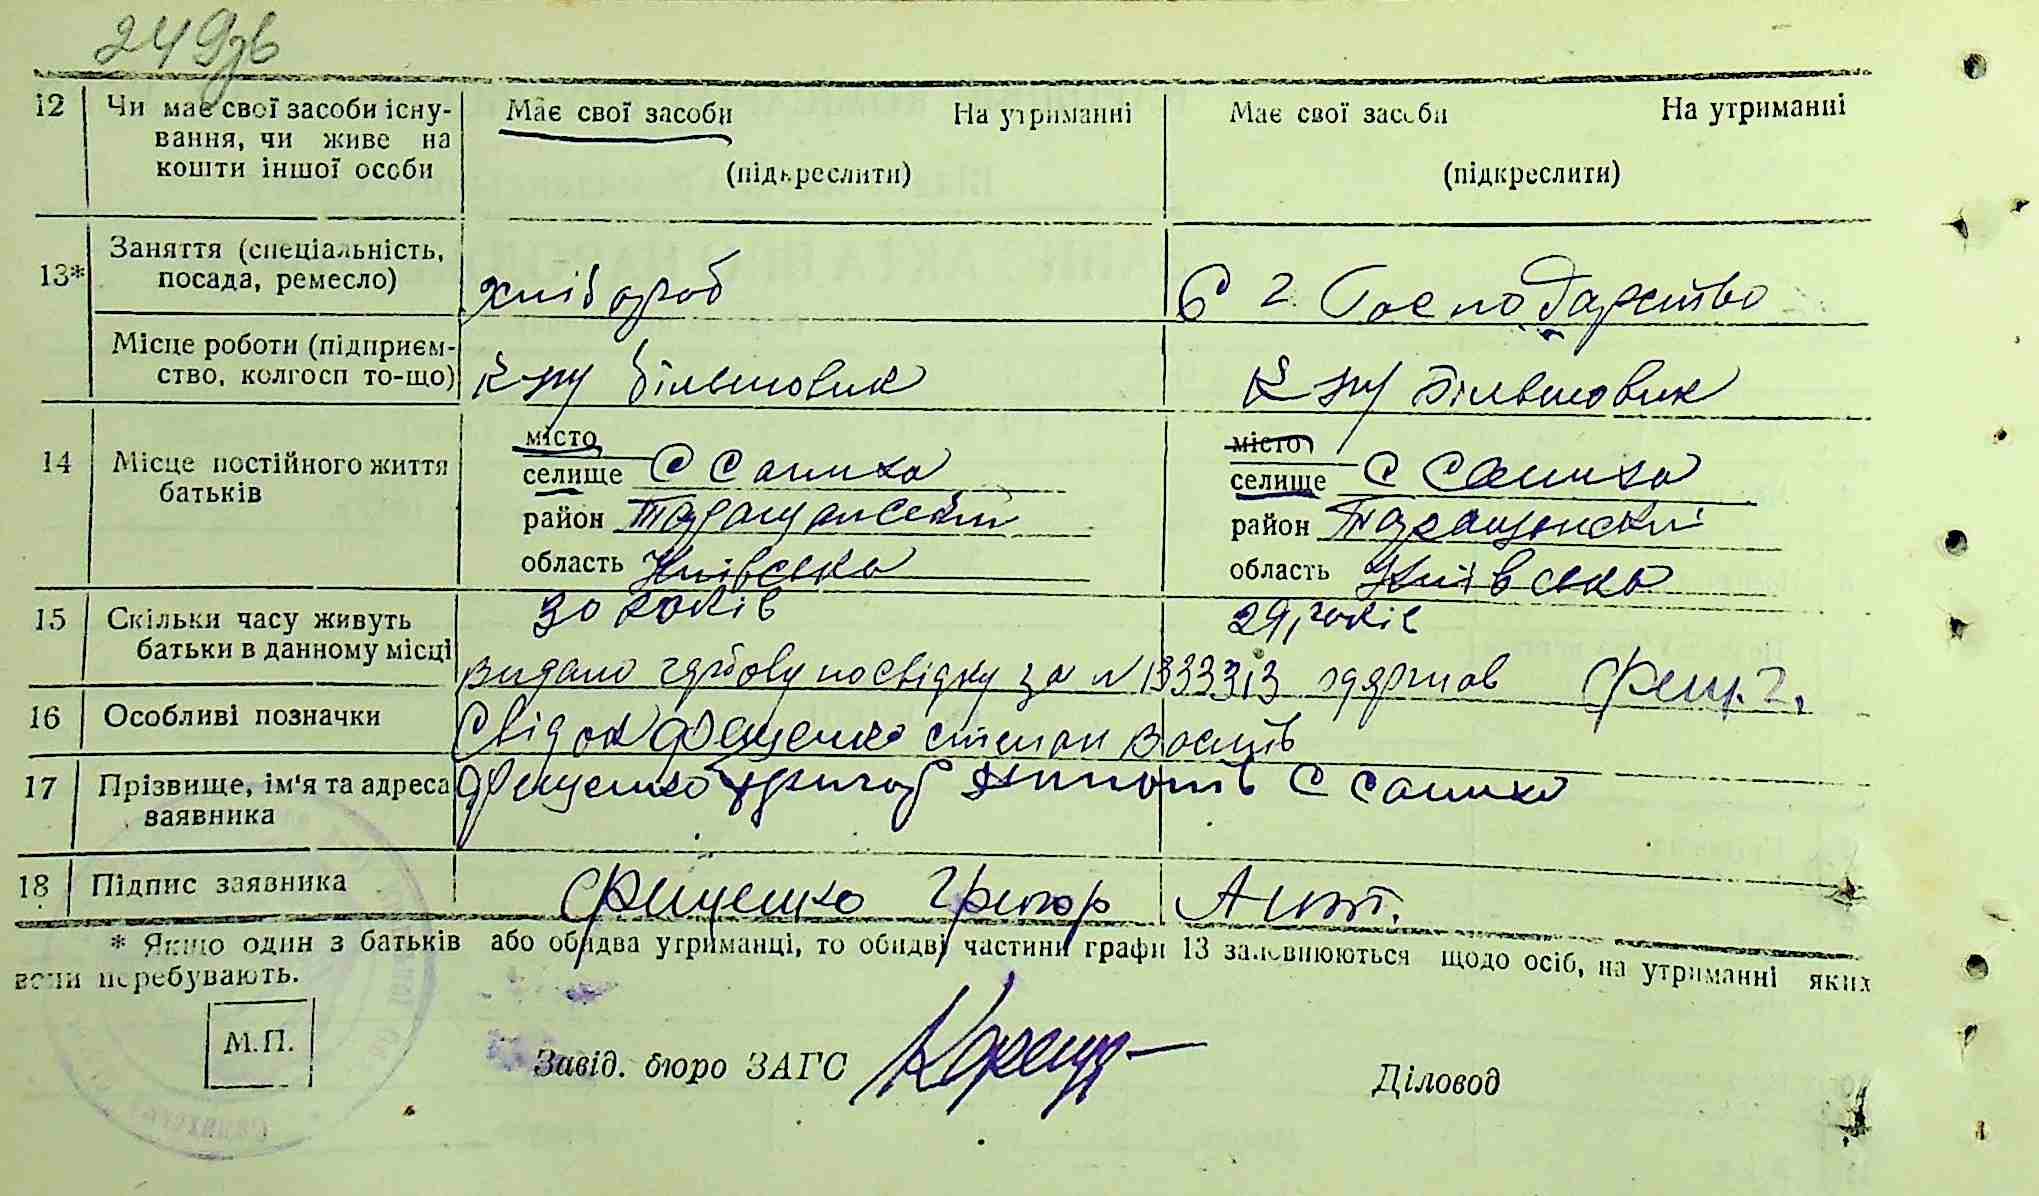 249зв
12 Чи має свої засоби існу- Має свої засоби На утриманні Має свої засоби На утриманні
вання, чи живе на
кошти іншої особи (підкреслити) (підкреслити)
Заняття (спеціальність,
13* посада, ремесло) хлібороб С г. Господарство
Місце роботи (підприєм-
ство, колгосп то-що) К-пу більшовик К-пу Більшовик
місто місто
14 Місце постійного життя селище С Саниха селище С Саниха
батьків район Таращанський район Таращанський
область Київська область Київська
15 Скільки часу живуть 30 років 29 років
батьки в данному місці
видано гербову посвідку за № 133313 одержав Фещ. Г.
16 Особливі позначки Свідок Фещенко степан
17 Прізвище, ім'я та адреса Фещенко С Саниха
заявника
18 Підпис заявника Фещенко Григор Ант.
* Якщо один з батьків або обидва утриманці, то обидві частини графи 13 заповнюються щодо осіб, на утриманні яких
вони перебувають.
М.П.
Завід. бюро ЗАГС Діловод